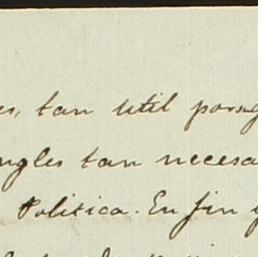 es, tan util porqu
ngles tan necesa
Politica. En fin y